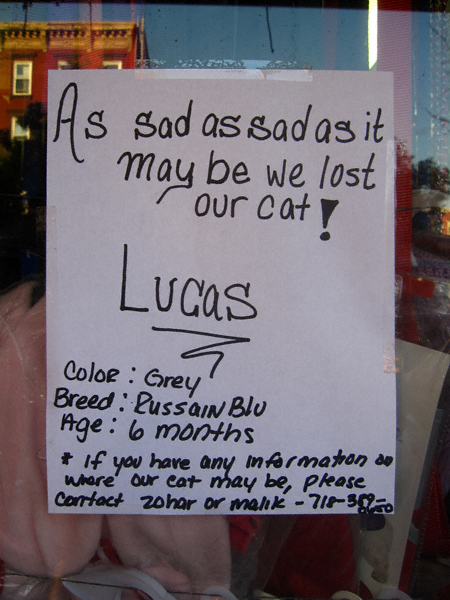 As sad as sad as it
may be we lost
our cat!
Lucas
Color: Grey
Breed: Russain Blu
Age: 6 months
* If you have any information on
where our cat may be, please
contact zohar or malik - 718-389-